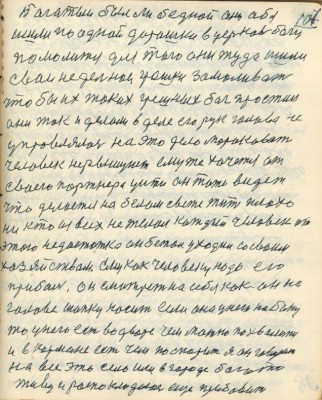 богатый был ли бедной они оба
шли по одной дорошки в церков богу
помолитца для того они туда шли
свои неделной грешки замоливат
чтобы их таких грешных бог простил
они так и делали в деле его рук голова не
управлялас на это дело мороковат
человек нервничует ему не хочется от
своего партнера уйти он тоже видет
что делается на белом свете жит плохо
ни кто из всех не желал каждый человек от
этого недостатка он бежал уходил со своим
хозяйством. ему как человеку надо его
прибыл. он смотрет на себя как он на
голове шапку носит если она у него на боку
то у него ест во дворе чем можно похвалится
и в кармане ест чем поспорит я он говорит
на все это село или в городе богато
живу и располагаю еще прибавит